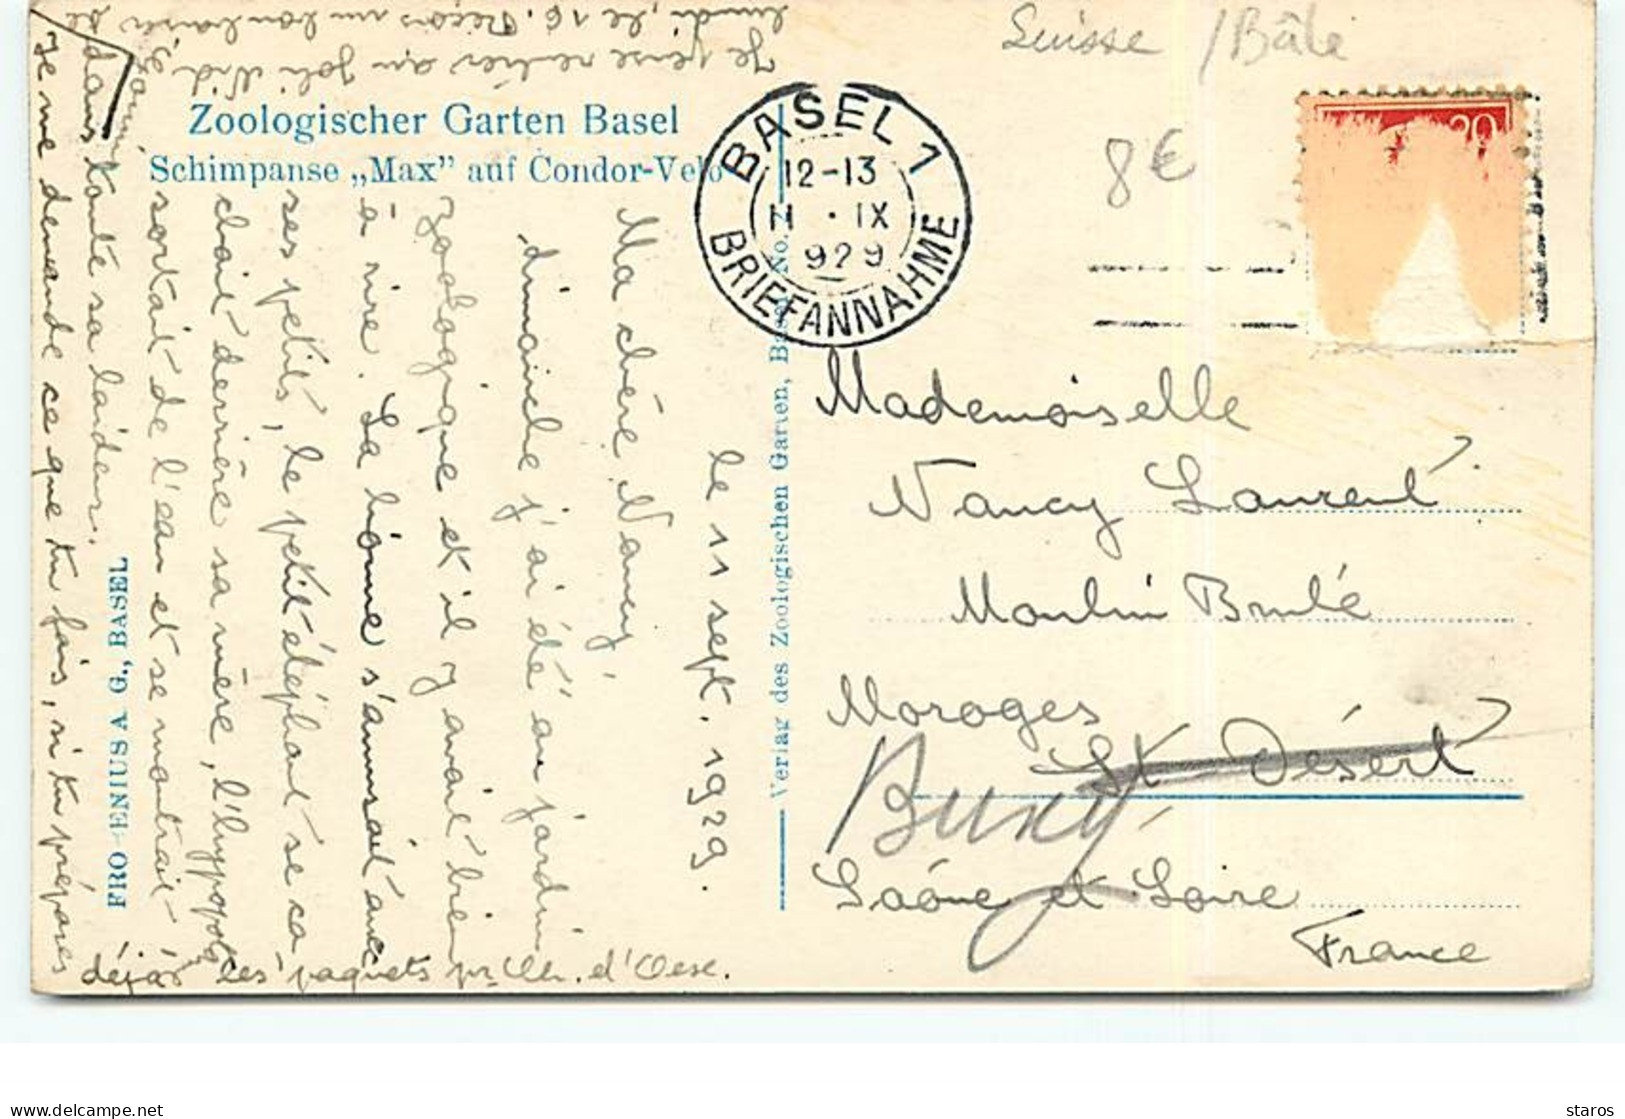 Suisse / Bâle
8€
20
Zoologischer Garten Basel
Schimpanse „Max” auf Condor-Velo
BASEL 1
12-13
11 · IX
929
BRIEFANNAHME
le 11 sept. 1929.
Ma chère Nancy,
dimanche j'ai été au jardin
zoologique et il y avait bien
à rire. La lionne s'amusait avec
ses petits, le petit éléphant se ca
chait derrière sa mère, l'hyppopota
sortait de l'eau et se montrait
dans toute sa laideur.
Je me demande ce que tu fais, si tu prépares
déjà les paquets pr Ch. d'Oex.
Je pense rentrer au joli Nid
lundi, le 16. Reçois un bon baiser de
Verlag des Zoologischen Garten, Basel No.
FRO ENIUS A. G., BASEL
Mademoiselle
Nancy Laurent
Moulin Brulé
Moroges
St Désert
Buxy
Saône et Loire
France
delcampe.net
staros